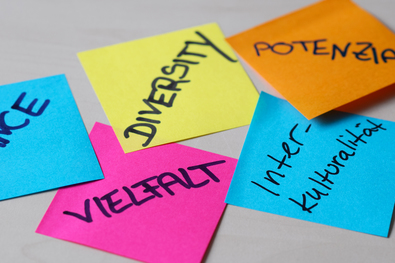 DIVERSITY
POTENZIA
NCE
VIELFALT
Inter-
kulturalität